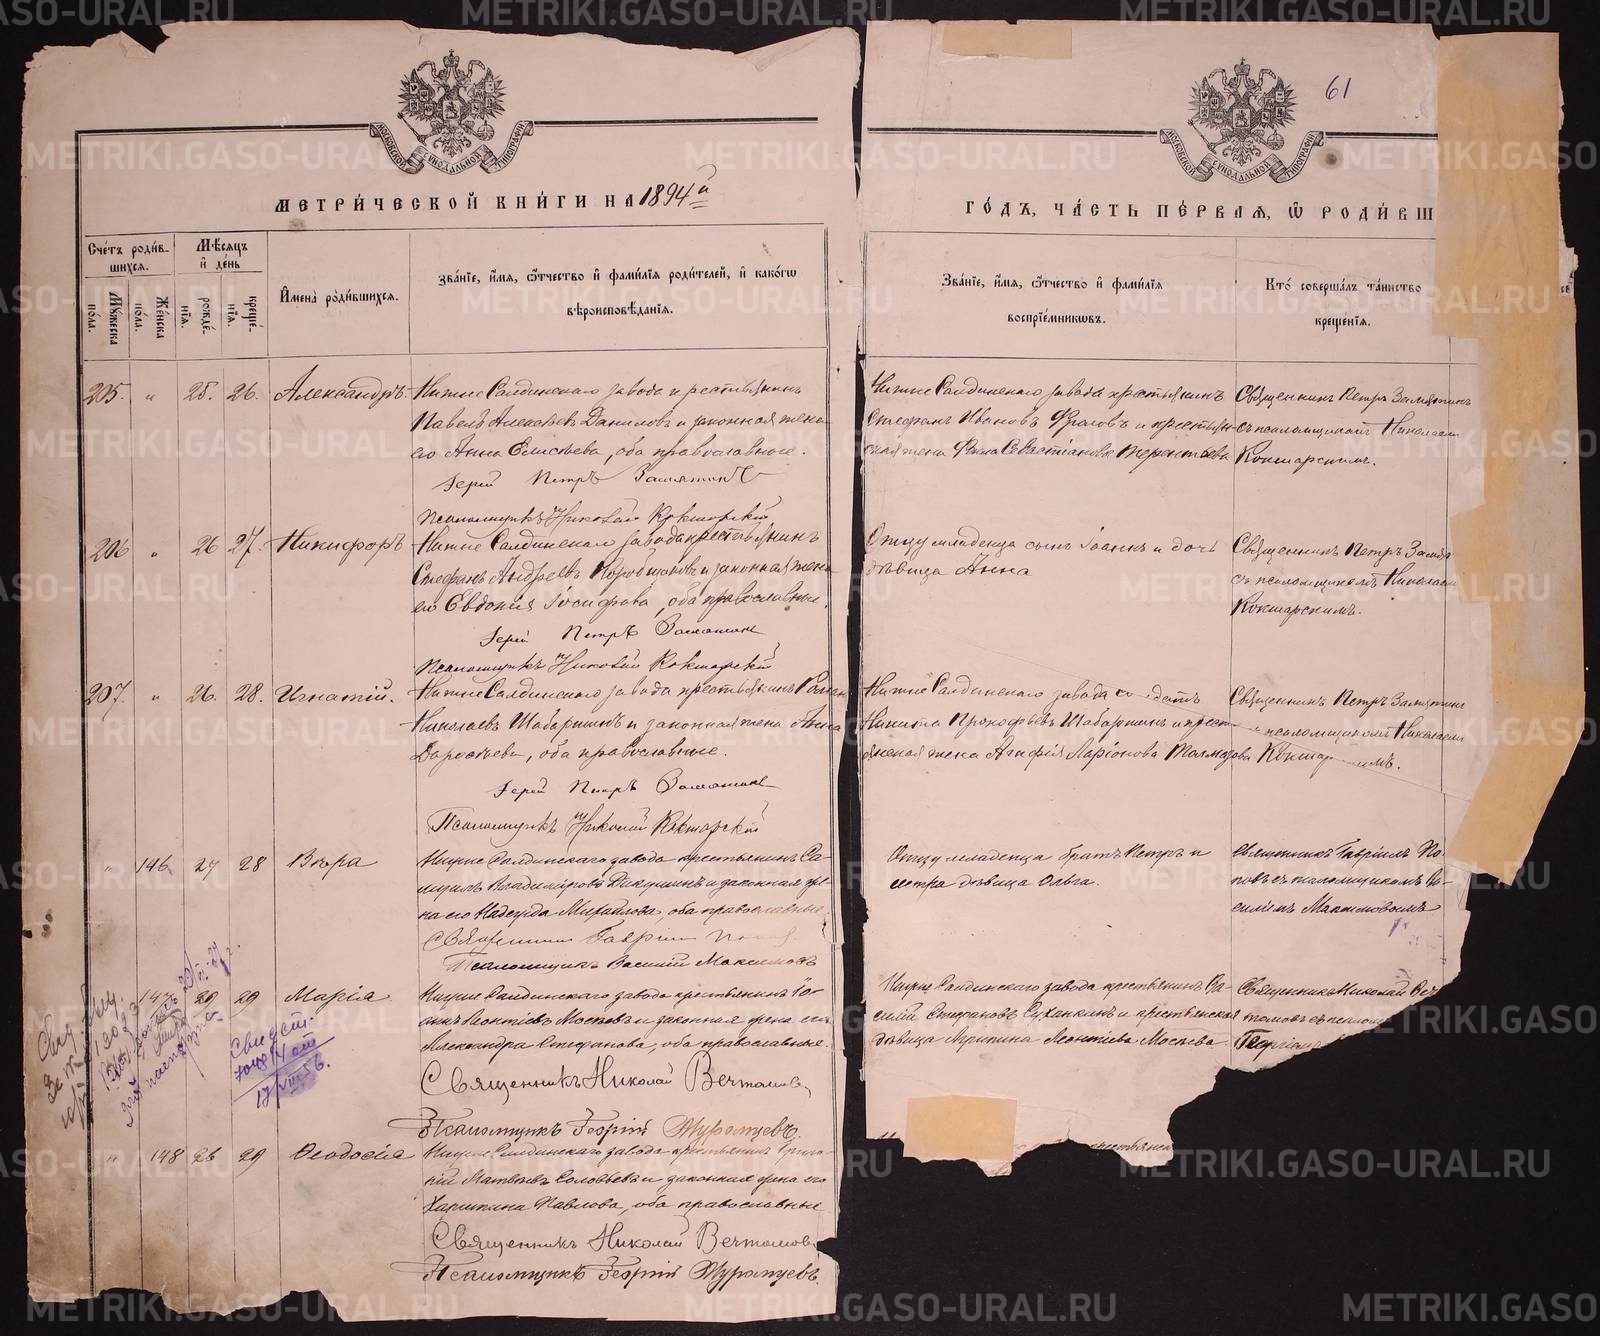 61
МЕТРИ́ЧЕСКОЙ КНИ́ГИ НА 1894й
ГО́ДЪ, ЧА́СТЬ ПЕ́РВАЯ, Ѽ РОДИ́ВШ
Сче́тъ роди́в-
шихся.
Мѣ́сяцъ
и҆ де́нь
Мꙋ́жеска
по́ла.
Же́нска
по́ла.
рожде́-
нїя.
креще́-
нїя.
И҆мена̀ роди́вшихся.
Зва́нїе, и҆́мя, ѻ҆́тчество и҆ фами́лїя роди́телей, и҆ како́гѡ
вѣроисповѣ́данїя.
Зва́нїе, и҆́мя, ѻ҆́тчество и҆ фами́лїя
воспрїе́мникѡвъ.
Кто̀ соверша́лъ та́инство
креще́нїя.
205. " 25. 26. Александръ.
Нижне Салдинскаго завода крестьянинъ
Павелъ Алексѣевъ Даниловъ и законная жена
его Анна Елисѣева, оба православные.
Іерей Петръ Замятинъ
Псаломщикъ Николай Кокшарскій
Нижне Салдинскаго завода крестьянинъ
Стефанъ Ивановъ Фроловъ и крестьян-
ская жена Севастіанова Терентьева
Священникъ Петръ Замятинъ
съ псаломщикомъ Николаем
Кокшарскимъ.
206 " 26 27. Никифоръ
Нижне Салдинскаго завода крестьянинъ
Стефанъ Андреевъ и законная жена
его Евдокія Іосифова, оба православные.
Іерей Петръ Замятинъ
Псаломщикъ Николай Кокшарскій
Отцу младенца сынъ Іоаннъ и дочь
дѣвица Анна
Священникъ Петръ Замя
съ псаломщикомъ Николаем
Кокшарскимъ.
207. " 26. 28. Игнатій.
Нижне Салдинскаго завода крестьянинъ Роман
Николаевъ Шабаршинъ и законная жена Анна
Дороѳеева, оба православные.
Іерей Петръ Замятинъ
Псаломщикъ Николай Кокшарскій
Нижне Салдинскаго завода солдатъ
Никита Прокофьевъ Шабаршинъ и крест-
янская жена Агафія Ларіонова
Священникъ Петръ Замятин
псаломщикомъ Николаем
Кокшар имъ.
" 146 27 28 Вѣра
Нижне Салдинскаго завода крестьянинъ Са-
муилъ Владиміровъ Дикушинъ и законная же-
на его Надежда Михайлова, оба православные.
Священникъ Гавріилъ Попов
Псаломщикъ Василій Максимовъ
Отцу младенца братъ Петръ и
сестра дѣвица Ольга.
Священникъ Гавріилъ По-
повъ съ псаломщикомъ Ва-
силіемъ Максимовымъ
147 29 29 Марія
Нижне Салдинскаго завода крестьянинъ Іо-
аннъ Леонтіевъ Мосѣевъ и законная жена его
Александра Стефанова, оба православные.
Священникъ Николай Вечтомов,
Псаломщикъ Георгій Журомцевъ.
Нижне Салдинскаго завода крестьянинъ Ва-
силій Стефановъ Суханкинъ и крестьянская
дѣвица Агрипина Леонтіева Мосѣева.
Священникъ Николай Веч
томовъ съ псалом
Георгіем
Свидет.
17/VIII 56.
" 148 28 29 Ѳеодосія
Нижне Салдинскаго завода крестьянинъ Григо-
рій Матвѣевъ Соловьевъ и законная жена его
Харитина Павлова, оба православные
Священникъ Николай Вечтомов,
Псаломщикъ Георгій Журомцевъ.
крестьянск
METRIKI.GASO-URAL.RU